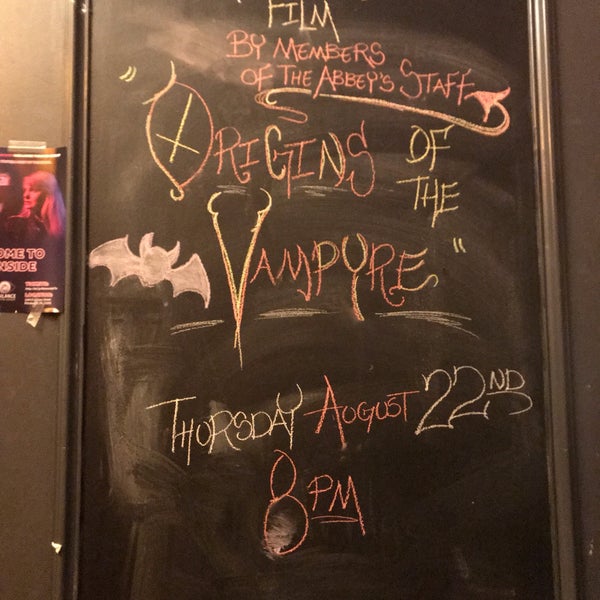 FILM
BY MEMBERS
OF THE ABBEY'S STAFF
"ORIGINS OF
THE
VAMPYRE"
THURSDAY AUGUST 22ND
8PM
OME TO
NSIDE